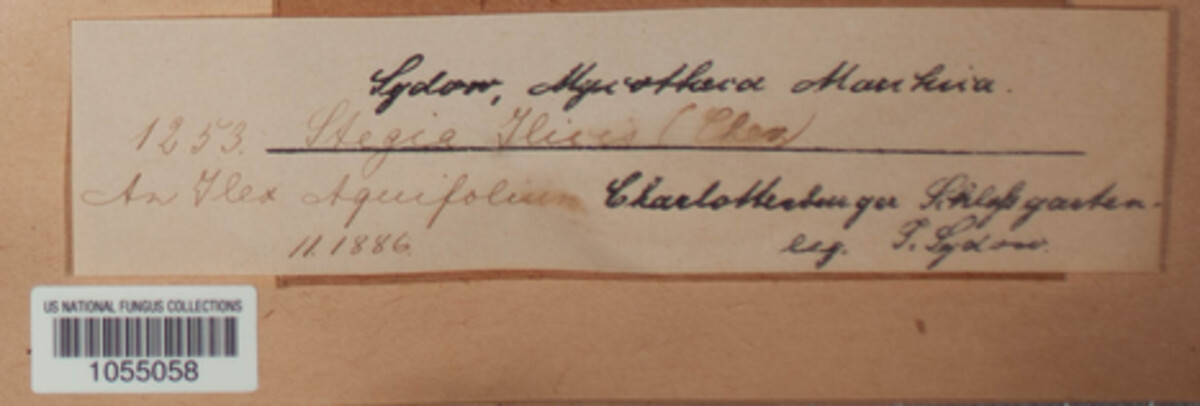 Sydow, Mycotheca Marchica.
1253. Stegia Ilicis (Chev)
An Ilex Aquifolium Charlottenburger Schloßgarten.
11.1886. leg. P. Sydow.
US NATIONAL FUNGUS COLLECTIONS
1055058